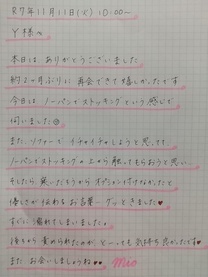 R7年11月11日(火) 10:00〜
Y様へ
本日は ありがとうございました
約2ヶ月ぶりに 再会できて嬉しかったです
今日は ノーパンでストッキングという感じで
伺いました
また、ソファーで イチャイチャしようと思ってて
ノーパンとストッキングの上から触ってもらおうと思い…
そしたら 驚いたもうから オプション付けなかったと
優しさが 伝わる お言葉… グッときました♥
すごい 濡れてしまいました。
後ろから 責められたのが、と〜っても 気持ち良かったです♥
また お会いしましょうね♥♥ Mio